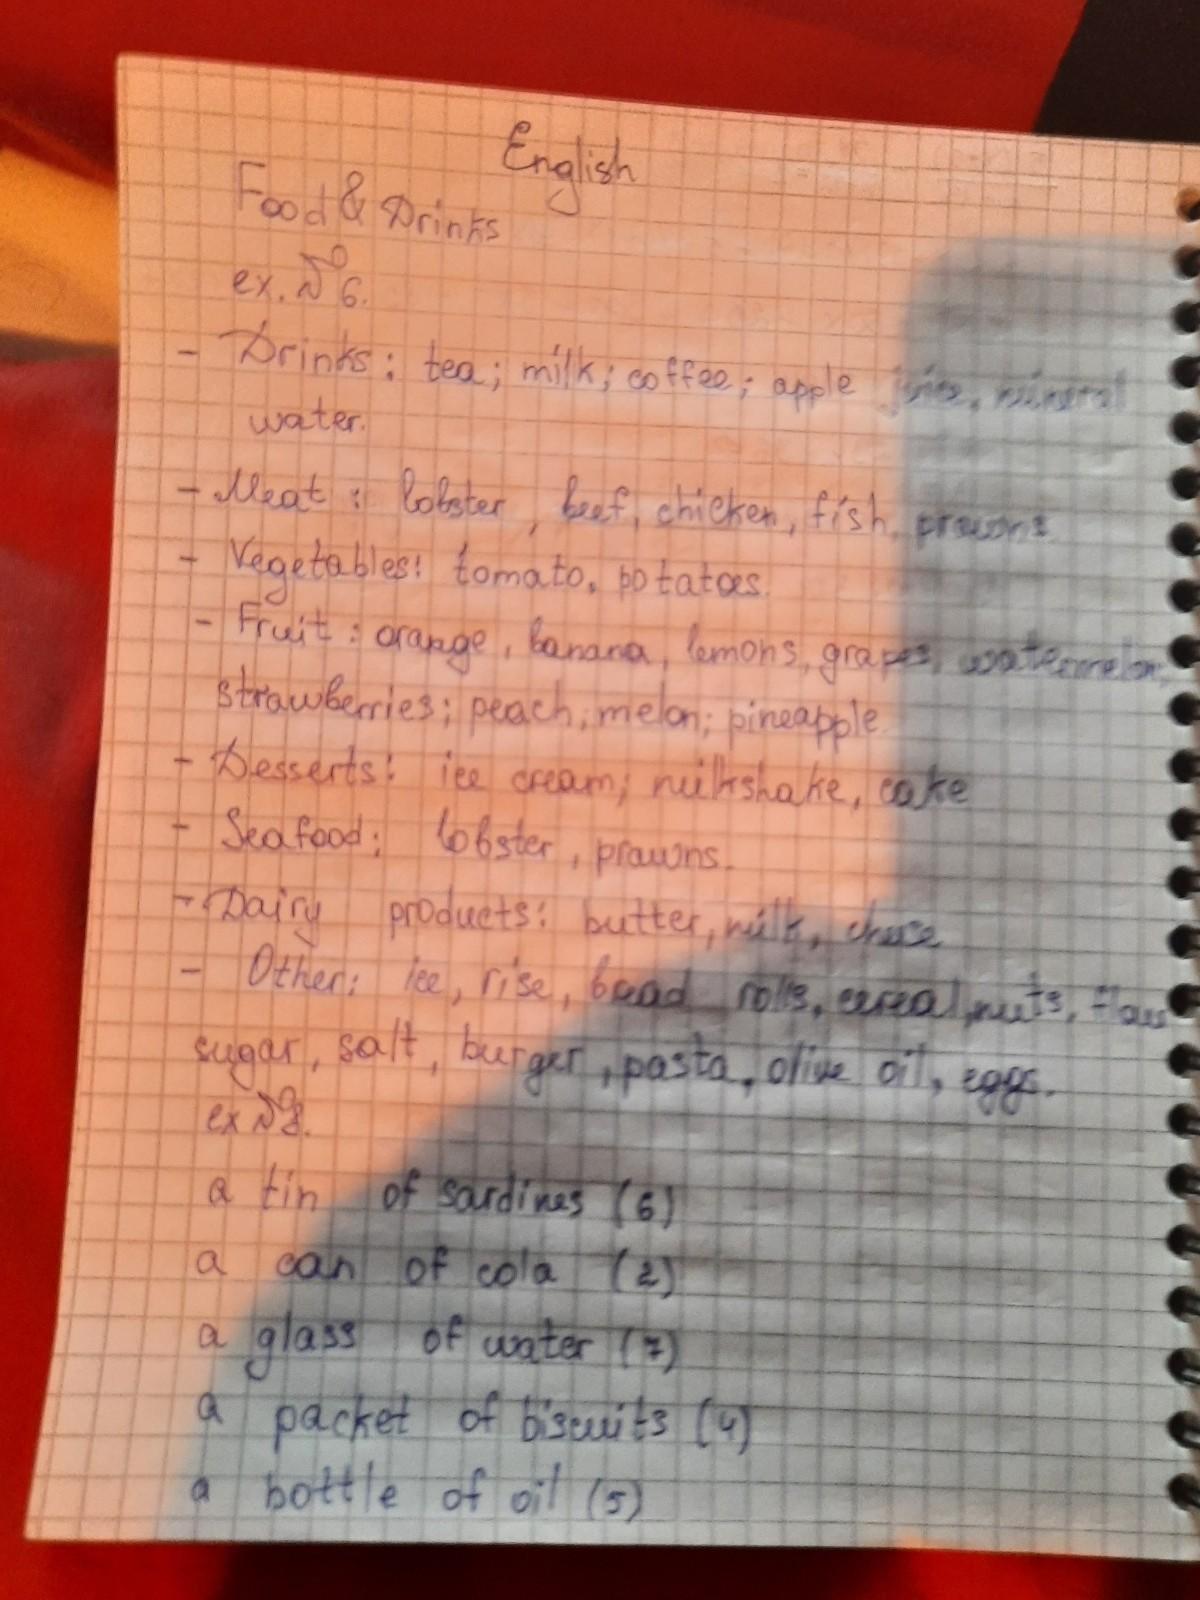 English
Food & Drinks
ex. № 6.
- Drinks: tea; milk; coffee; apple juice, mineral
water.
- Meat: lobster, beef, chicken, fish, prawns.
- Vegetables: tomato, potatoes.
- Fruit: orange, banana, lemons, grapes, watermelon,
strawberries; peach; melon; pineapple.
- Desserts: ice cream; milkshake, cake
- Seafood: lobster, prawns.
- Dairy products: butter, milk,
- Other: ice, rise, bread rolls, cereal, nuts,
sugar, salt, burger, pasta, olive oil, eggs.
ex № 8.
a tin of sardines (6)
a can of cola (2)
a glass of water (7)
a packet of biscuits (4)
a bottle of oil (5)